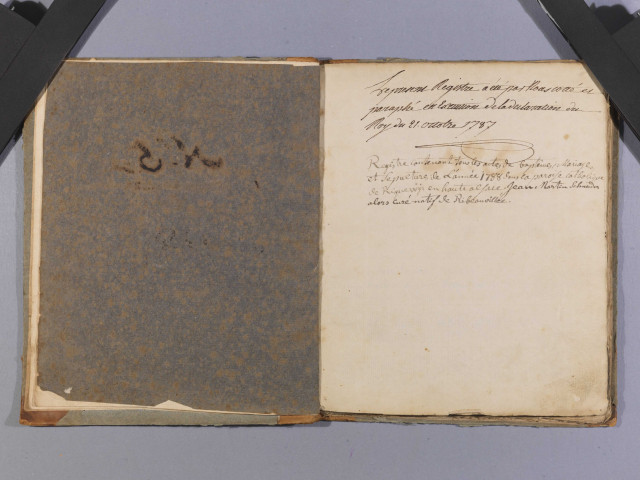 Le present Registre a été par Nous coté et
paraphé en Execution de la declaration du
Roy du 21 octobre 1787
Registre contenant tous les actes de baptême, mariage
et sépulture de L'année 1788 dans la paroisse catholique
de en haute alsace Jean Martin
alors curé natif de Ribeauviller.
N.° 5